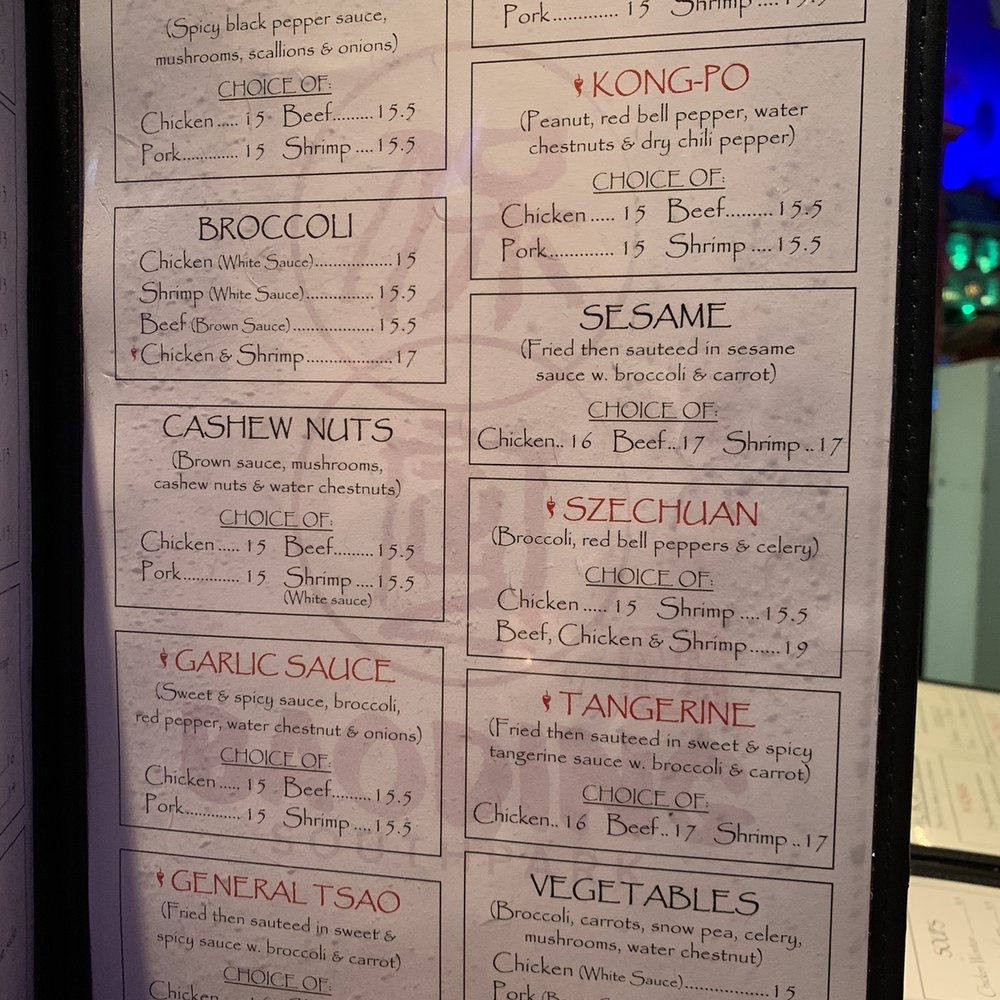 (Spicy black pepper sauce,
mushrooms, scallions & onions)
CHOICE OF:
Chicken ..... 15 Beef.........15.5
Pork............. 15 Shrimp ....15.5
BROCCOLI
Chicken (White Sauce)..................15
Shrimp (White Sauce)............... 15.5
Beef (Brown Sauce)................... 15.5
Chicken & Shrimp....................17
CASHEW NUTS
(Brown sauce, mushrooms,
cashew nuts & water chestnuts)
CHOICE OF:
Chicken ..... 15 Beef.........15.5
Pork............. 15 Shrimp ....15.5
(White sauce)
GARLIC SAUCE
(Sweet & spicy sauce, broccoli,
red pepper, water chestnut & onions)
CHOICE OF:
Chicken ..... 15 Beef.........15.5
Pork............. 15 Shrimp ....15.5
GENERAL TSAO
(Fried then sauteed in sweet &
spicy sauce w. broccoli & carrot)
CHOICE OF:
Chicken
Pork............... 15 Shrimp ....15.5
KONG-PO
(Peanut, red bell pepper, water
chestnuts & dry chili pepper)
CHOICE OF:
Chicken ..... 15 Beef.........15.5
Pork............... 15 Shrimp ....15.5
SESAME
(Fried then sauteed in sesame
sauce w. broccoli & carrot)
CHOICE OF:
Chicken.. 16 Beef.. 17 Shrimp .. 17
SZECHUAN
(Broccoli, red bell peppers & celery)
CHOICE OF:
Chicken ..... 15 Shrimp ....15.5
Beef, Chicken & Shrimp......19
TANGERINE
(Fried then sauteed in sweet & spicy
tangerine sauce w. broccoli & carrot)
CHOICE OF:
Chicken.. 16 Beef.. 17 Shrimp .. 17
VEGETABLES
(Broccoli, carrots, snow pea, celery,
mushrooms, water chestnut)
Chicken (White Sauce)...................15
Pork
SOUTH PARK
SOUPS